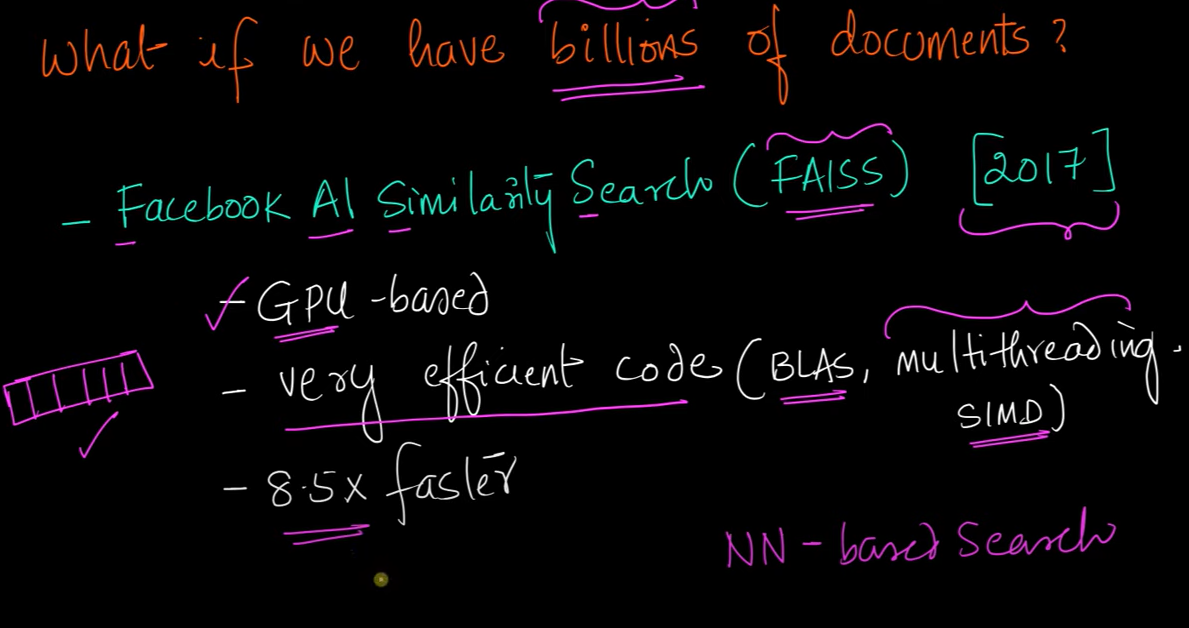 What if we have billions of documents?
- Facebook AI Similarity Search (FAISS) [2017]
- GPU-based
- very efficient code (BLAS, multithreading.
SIMD)
- 8.5x faster
NN-based Search